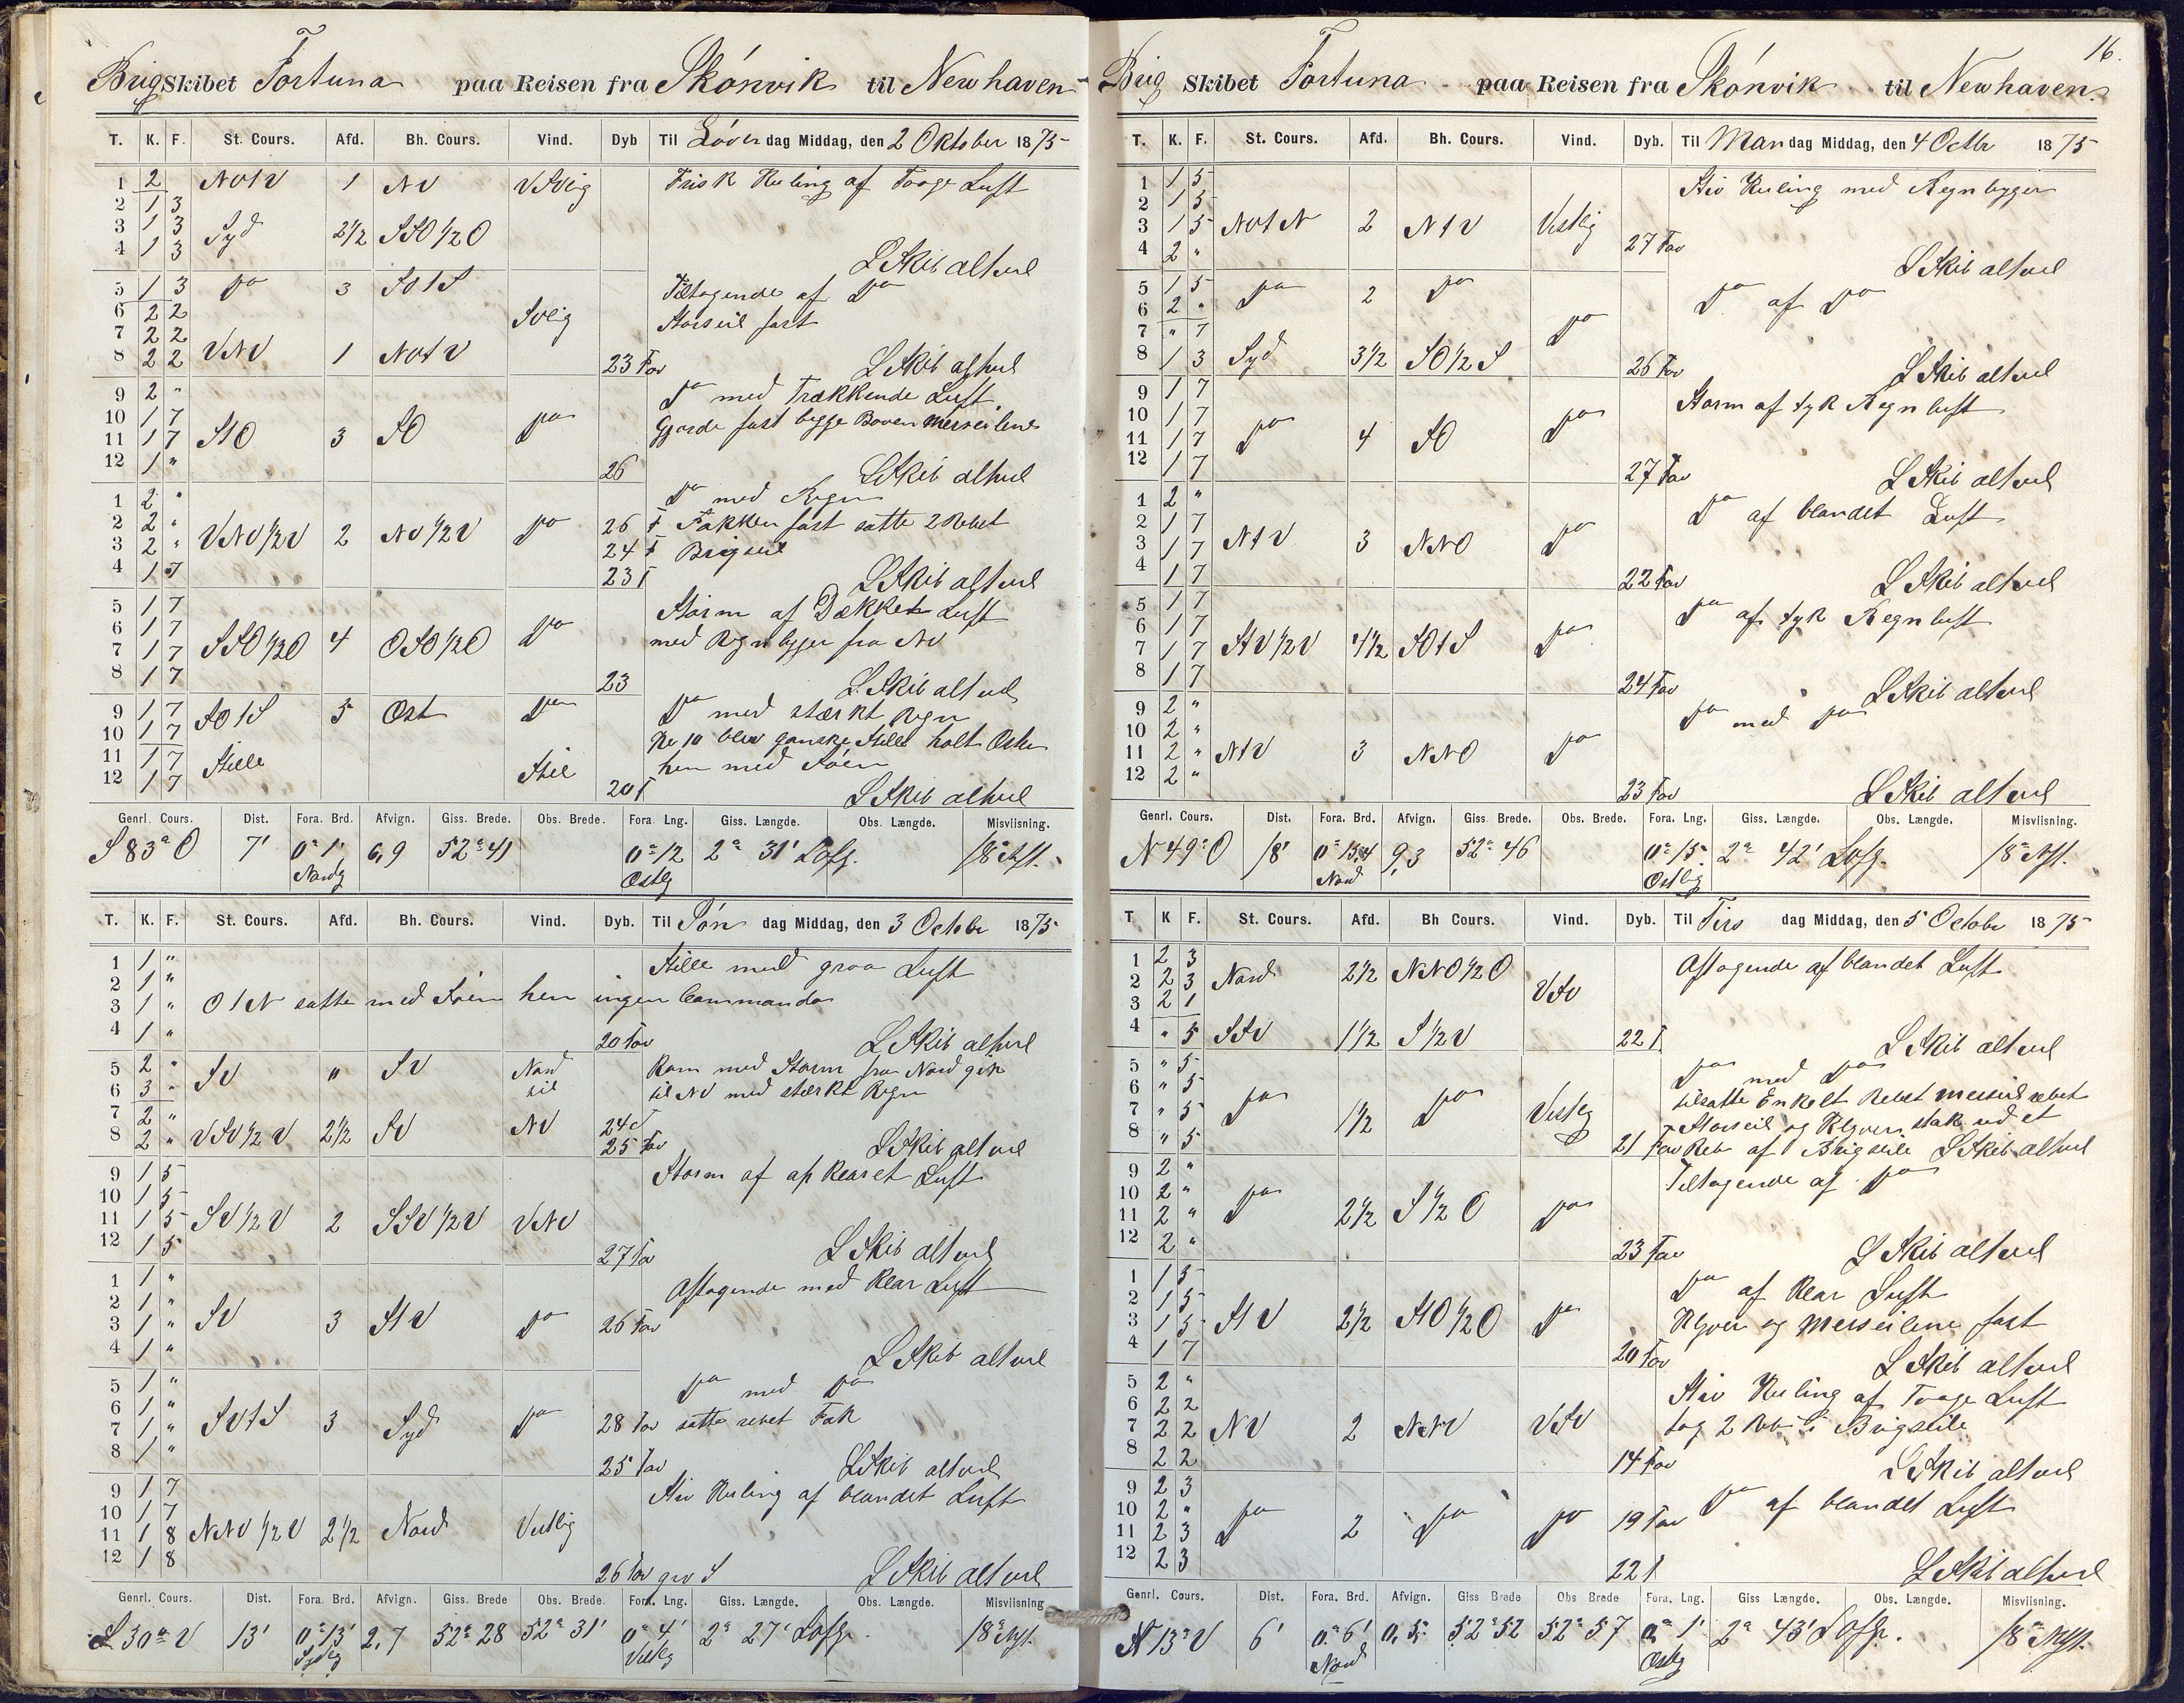 Brig Skibet Fortuna paa Reisen fra Skónvik til Newhaven
T. K. F. St. Cours. Afd. Bh. Cours. Vind. Dyb Til Löver dag Middag, den 2 Oktober 1875
1 2 NOtV 1 NV VSVlig Frisk Kuling af Taage Luft
2 1 3
3 1 3 Syd 2½ SSO½O
4 1 3 L Skib altvel
5 1 3 do 3 SOtS Tiltagende af do
6 2 2 SVlig Storseil fast
7 2 2
8 2 2 VNV 1 NOtV 23 Fav L Skib altvel
9 2 " do med Trækkende Luft
10 1 7 Gjorde fast begge Boven Merseilene
11 1 7 StO 3 SO do
12 1 " 26 L Skib altvel
1 2 " do med Regn
2 2 " VNV½V 2 NV½V do 26 F Fokken fast satte 2 Rebet
3 2 " 24 F Brigseil
4 1 7 23 F L Skib altvel
5 1 7 Storm af Dækket Luft
6 1 7 med Regnbyger fra NV
7 1 7 SSO½O 4 OSO½O do
8 1 7 23 L Skib altvel
9 1 7 SOtS 5 Ost do do med stærkt Regn
10 1 7 Kl 10 blev ganske Stille holt Oster
11 1 7 Stille Stil hen med Söen
12 1 7 20 F L Skib altvel
Genrl. Cours. Dist. Fora. Brd. Afvign. Giss. Brede. Obs. Brede. Fora. Lng. Giss. Længde. Obs. Længde. Misviisning.
S 83° O 7' 0° 1' Nordg 6,9 52° 41 0° 12 Ostlg 2° 31' Lofg. 18° Nft.
T. K. F. St. Cours. Afd. Bh. Cours. Vind. Dyb. Til Sön dag Middag, den 3 October 1875
1 1 " Stille med graa Luft
2 1 "
3 1 " OtN satte med Söen hen ingen Commando
4 1 " 20 Fav L Skib altvel
5 2 " SV " SV Nord Kom med Storm fra Nord gik
6 3 " til til NV med stærkt Regn
7 2 " 24 F
8 2 " VSV½V 2½ SV NV 25 Fav L Skib altvel
9 1 5 Storm af opklaret Luft
10 1 5
11 1 5 SV½V 2 SSV½V VNV
12 1 5 27 Fav L Skib altvel
1 1 " Aftagende med Klar Luft
2 1 "
3 1 " SV 3 StV do 26 Fav
4 1 " L Skib altvel
5 1 " do med do
6 1 " SVtS 3 Syd do 28 Fav satte rebet Fok
7 1 "
8 1 " 25 Fav L Skib altvel
9 1 7 Stiv Kuling af blandet Luft
10 1 7
11 1 8 NNV½V 2½ Nord Vestlig
12 1 8 26 Fav grv S L Skib altvel
Genrl. Cours. Dist. Fora. Brd. Afvign. Giss. Brede Obs. Brede. Fora. Lng. Giss. Længde. Obs. Længde. Misviisning
S 30° V 13' 0° 13' Sydlig 2,7 52° 28 52° 31' 0° 4' Vestlg 2° 27' Lofg. 18° Nft.
16.
Brig Skibet Fortuna paa Reisen fra Skónvik til Newhaven.
T. K. F. St. Cours. Afd. Bh. Cours. Vind. Dyb. Til Man dag Middag, den 4 Octbr 1875
1 1 5 Stiv Kuling med Regnbyger
2 1 5
3 1 5 NOtN 2 NtV Vestlig
4 2 " 27 Fav L Skib altvel
5 1 5 do 2 do do af do
6 2 "
7 " 7 do
8 1 3 Syd 3½ SO½S 26 Fav L Skib altvel
9 1 7 Storm af tyk Regnluft
10 1 7
11 1 7 do 4 SO do
12 1 7 27 Fav L Skib altvel
1 2 " do af blandet Luft
2 1 7
3 1 7 NtV 3 NNO do
4 1 7 22 Fav L Skib altvel
5 1 7 do af tyk Regnluft
6 1 7
7 1 7 StV½V 4½ SOtS do
8 1 7 24 Fav L Skib altvel
9 2 " do med do
10 2 "
11 2 " NtV 3 NNO do
12 2 " 23 Fav L Skib altvel
Genrl. Cours. Dist. Fora. Brd. Afvign. Giss. Brede. Obs. Brede. Fora. Lng. Giss. Længde. Obs. Længde. Misviisning
N 49° O 18' 0° 15,4 Nord 9,3 52° 46 0° 15 Ostlig 2° 42' Lofg. 18° Nft.
T K F. St. Cours. Afd. Bh Cours. Vind. Dyb. Til Tirs dag Middag, den 5 Octobr 1875
1 2 3 Aftagende af blandet Luft
2 2 3 Nord 2½ NNO½O VSV
3 2 1
4 " 5 SSV 1½ S½V 22 F. L Skib altvel
5 " 5 do med do
6 " 5 tilsatte Enkelt Rebet Merseil rebet
7 " 5 do 1½ do Vestlig Storseil og Klyver stak ud et
8 " 5 21 Fav Reb af Brigseile L Skib altvel
9 2 " Tiltagende af do
10 2 "
11 2 " do 2½ S½O do
12 2 " 23 Fav L Skib altvel
1 1 5 do af Klar Luft
2 1 5 Klyver og Merseilene fast
3 1 5 StV 2½ StO½O do
4 1 7 20 Fav L Skib altvel
5 2 " Stiv Kuling af Taage Luft
6 2 2 tog 2 Reb i Brigseile
7 2 2 NV 2 NNV VSV
8 2 2 14 Fav L Skib altvel
9 2 3 do af blandet Luft
10 2 " 19 Fav
11 2 3 do 2 do do
12 2 3 22 F L Skib altvel
Genrl. Cours. Dist. Fora. Brd. Afvign. Giss Brede Obs Brede Fora. Lng. Giss Længde. Obs. Længde. Misviisning.
N 13° V 6' 0° 6' Nord 0,5 52° 52 52° 57 0° 1' Ostlg 2° 43' Lofg. 18° Nft.